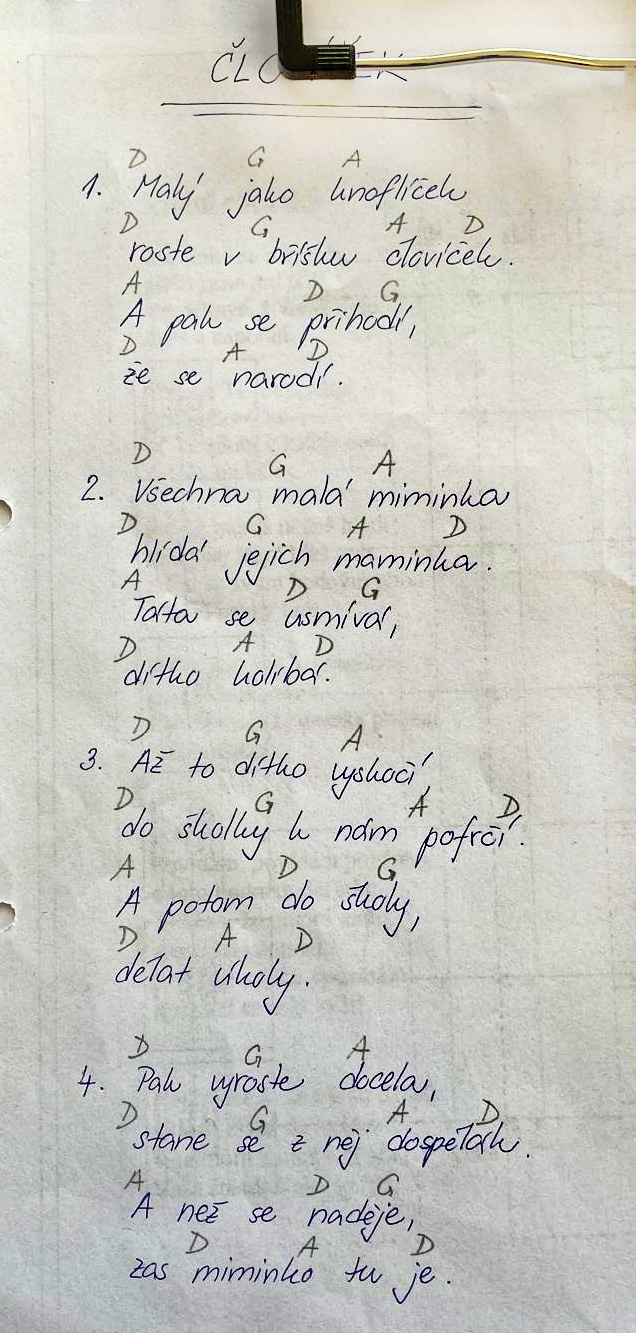 D G A
1. Malý jako knoflíček
D G A D
roste v bříšku človíček.
A D G
A pak se přihodí,
D A D
že se narodí.
D G A
2. Všechna malá miminka
D G A D
hlídá jejich maminka.
A D G
Táta se usmívá,
D A D
dítko kolíbá.
D G A
3. Až to dítko vyskočí,
D G A D
do školky k nám pofrčí.
A D G
A potom do školy,
D A D
dělat úkoly.
D G A
4. Pak vyroste docela,
D G A D
stane se z něj dospělák.
A D G
A než se naděje,
D A D
zas miminko tu je.